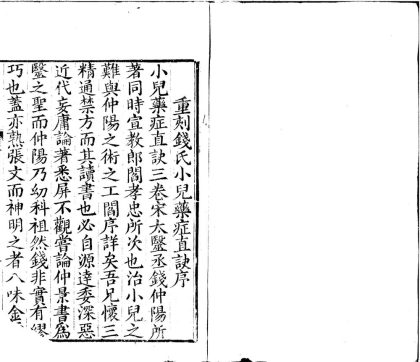 重刻錢氏小兒藥症直訣序
小兒藥症直訣三卷宋太醫丞錢仲陽所
著同時宣教郎閻孝忠所次也治小兒之
難與仲陽之術之工閻序詳矣吾兄懷三
精通禁方而其讀書也必自源達委深惡
近代妄庸論著悉屏不觀嘗論仲景書為
醫之聖而仲陽乃幼科祖然錢非實有繆
巧也蓋亦熟張文而神明之者八味金